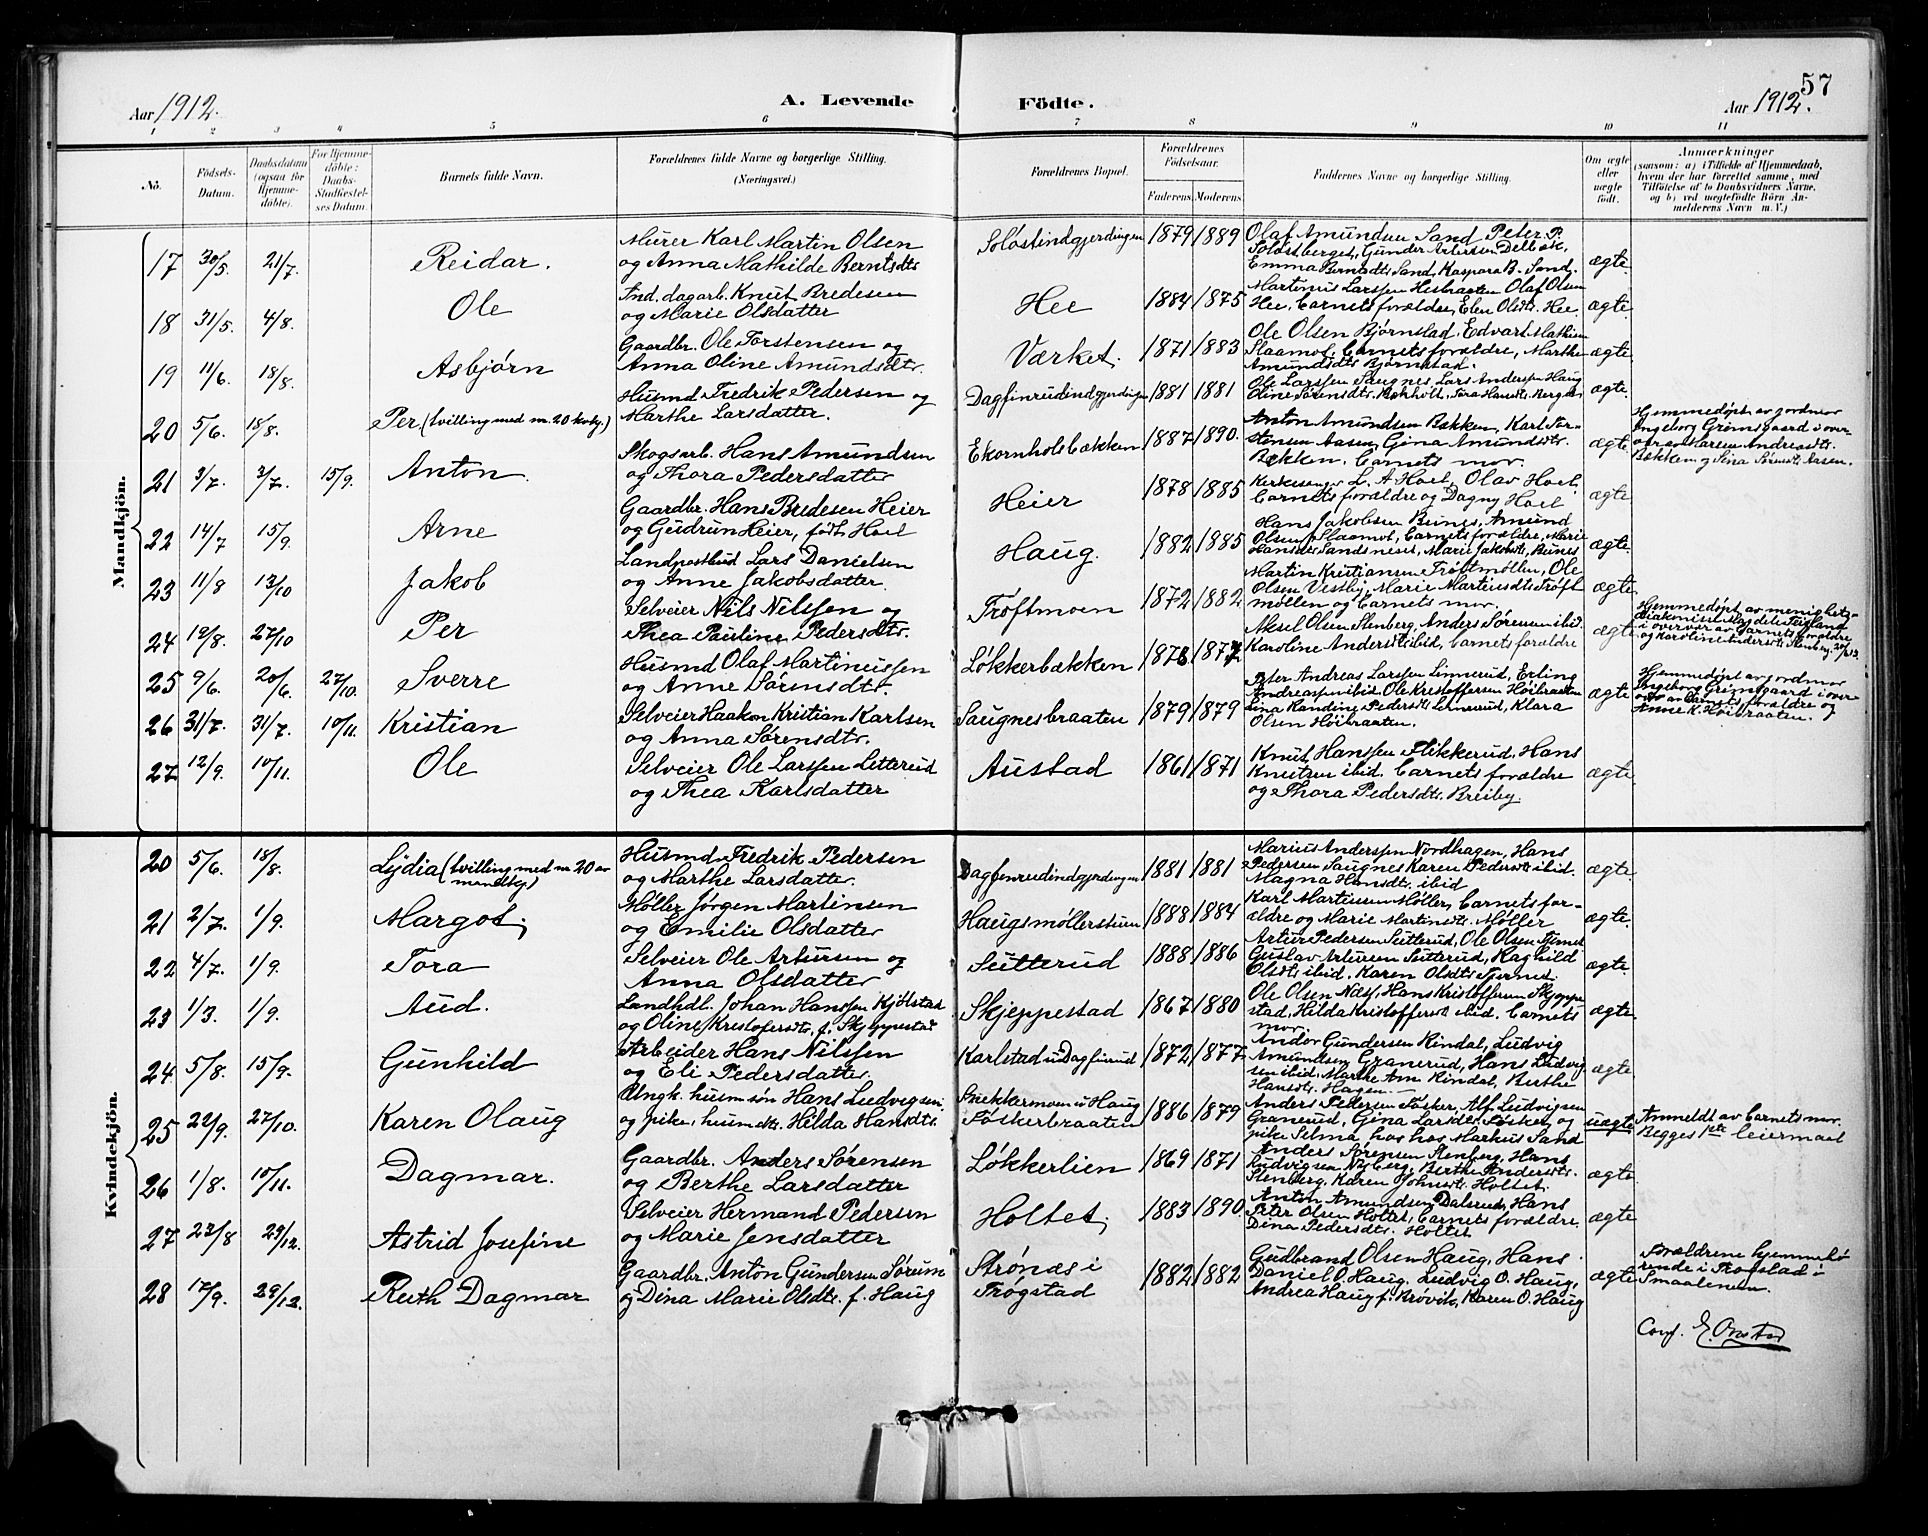 57
Aar 1912.
A. Levende Födte.
Aar 1912.
1 2 3 4 5 6 7 8 9 10 11
No.
Födsels-Datum.
Daabsdatum (ogsaa for Hjemme-döbte).
For Hjemme-döbte: Daabs-Stadfæstel-ses Datum.
Barnets fulde Navn.
Forældrenes fulde Navne og borgerlige Stilling.
(Næringsvei.)
Forældrenes Bopæl.
Forældrenes Födselsaar.
Faderens. Moderens.
Faddernes Navne og borgerlige Stilling.
Om ægte eller uægte født.
Anmærkninger
(saasom: a) i Tilfælde af Hjemmedaab,
hvem der har forrettet samme, med
Tilföielse af to Daabsvidners Navne,
og b) ved uægtefödte Börn An-
melderens Navn m. V.)
Mandkjön.
17 30/5. 21/7. Reidar. Murer Karl Martin Olsen
og Anna Mathilde Berntsdtr
Soløstindgjerdingen 1879 1889 Olaf Amundsen Sand Peter P.
Soløstberget, Gunder Antersen Delbæk.
Emma Berntsdtr Sand, Kaspara B. Sand. ægte.
18 31/5. 4/8. Ole Ind. dagarb. Knut Bredesen
og Marie Olsdatter
Hee 1884 1875 Martinus Larssen Hesbraaten Olaf Olsen
Hee, barnets forældre, Elen Olsdtr. Hee. ægte.
19 11/6. 18/8. Asbjørn Gaardbr. Ole Torstensen og
Anna Oline Amundsdtr.
Værket. 1871 1883 Ole Olsen Bjørnstad, Edvart Mathisen
Slaamot, barnets forældre, Marthe
Amundsdtr Bjørnstad. ægte
20 5/6. 18/8. Per (tvilling med nr. 20 kvkj.) Husmd Fredrik Pedersen og
Marthe Larsdatter.
Dagfinrudindgjerdingen 1881 1881 Ole Larssen Saugnes, Lars Andersen Haug
Oline Sørensdtr. Ekeholt, Tora Hansdtr. Berger ægte.
21 3/7. 3/7. 15/9. Anton. Skogsarb. Hans Amundsen
og Thora Pedersdatter
Ekornholsbækken 1887 1890. Anton Amundsen Bækken, Karl Tor-
stensen Aasen, Gina Amundsdtr.
Bækken, barnets mor. ægte.
Hjemmedøpt av jordmor
Ingeborg Grimsgaard i over-
vær av Maren Andreasdtr.
Bækken og Lina Sørensdtr. Aasen.
22 14/7 15/9. Arne Gaardbr. Hans Bredesen Heier
og Gudrun Heier, født Hoel
Heier 1878 1885 Kirkesanger L. A Hoel, Olav Hoel,
barnets forældre og Dagny Hoel ægte
23 11/8 13/10 Jakob Landpostbud Lars Danielsen
og Anne Jakobsdatter.
Haug. 1882 1885 Hans Jakobsen Bunes, Amund
Olsen Slaamot, barnets forældre, Marie
Hansdtr Sandsnes, Marie Jakobsdtr. Bunes ægte.
24 12/8. 27/10 Per Selveier Nils Nilssen og
Thea Pauline Pedersdtr.
Trøftmoen 1872 1882 Martin Kristiansen Trøftmøllen, Ole
Olsen Vestby, Marie Martinsdtr. Trøft
møllen og barnets mor. ægte.
25 9/6. 20/6. 27/10. Sverre Husmd Olaf Martinussen
og Anne Sørensdtr.
Løkkerbækken 1878 1877 Aksel Olsen Stenberg, Anders Sørensen ibid.
Karoline Andersdtr. ibid, barnets forældre ægte
Hjemmedøpt av menighets-
diakonisse Magdele Feigland
i overvær av barnets forældre
og Karoline Andersdtr. Stenberg. 20/6 12.
26 31/7. 31/7. 10/11. Kristian Selveier Haakon Kristian Karlsen
og Anna Sørensdtr.
Saugnesbraaten 1879 1879 Peter Andreas Larssen Linnerud, Erling
Andreassen ibid. Ole Kristoffersen Høibraaten
Lina Randine Pedersdtr. Linnerud, Klara
Olsen Høibraaten. ægte
Hjemmedøpt av jordmor
Ingeborg Grimsgaard i over-
vær av barnets forældre og
Anne K. Høibraaten.
27 12/9. 10/11. Ole Selveier Ole Larssen Letterud
og Thea Karlsdatter
Austad 1861 1871 Knut Hanssen Flikkerud, Hans
Knutsen ibid. barnets forældre
og Thora Pedersdtr. Breiby. ægte.
Kvindekjön.
20 5/6. 18/8. Lydia (tvilling med nr. 20 av mandkj.) Husmd. Fredrik Pedersen
og Marthe Larsdatter.
Dagfinrudindgjerdingen 1881 1881 Marius Anderssen Nordhagen, Hans
Pedersen Saugnes Karen Pedersdtr ibid.
Magna Hansdtr. ibid ægte.
21 2/7. 1/9. Margot. Møller Jørgen Martinsen
og Emilie Olsdatter
Haugsmøllerstuen 1888 1884 Karl Martinsen Møller, barnets for-
ældre og Marie Martinsdtr. Møller ægte.
22 4/7. 1/9. Tora Selveier Ole Artursen og
Anna Olsdatter
Sutterud 1888 1886 Artur Pedersen Sutterud, Ole Olsen Tjernet
Gustav Artursen Sutterud, Raghild
Olsdtr. ibid. Karen Olsdtr. Tjernet. ægte.
23 1/3. 1/9. Aud. Landhdl. Johan Hanssen Kjølstad
og Oline Kristofersdtr. f. Skjeppestad
Skjeppestad 1867 1880 Ole Olsen Næss, Hans Kristoffersen Skjeppe
stad, Hilda Kristoffersdtr ibid, barnets
mor. ægte.
24 5/8. 15/9. Gunhild Arbeider Hans Nilssen
og Eli Pedersdatter.
Karlstad u Dagfinrud 1872 1877 Andor Gundersen Rindal, Ludvig
Amundsen Granerud, Hans Ludvig
sen ibid, Marthe Am. Rindal, Berthe
Hansdtr. Hagen. ægte.
25 22/9. 27/10. Karen Olaug Ungk. husm.søn Hans Ludvigsen
og pike, husm.dtr. Hilda Hansdtr.
Snekkermoen u Haug
Føskerbraaten 1886 1879 Anders Pedersen Føsker, Alf Ludvigsen
Granerud, Gina Larsdtr. Føsker og
pike Selma hos hos. Markus Sand uægte
Anmeldt av barnets mor.
Begges 1ste leiermaal
26 1/8. 10/11. Dagmar. Gaardbr. Anders Sørensen
og Berthe Larsdatter
Løkkerlien 1869 1871 Anders Sørensen Stenberg, Hans
Ludvigsen Nyberg, Berthe Andersdtr.
Stenberg, Karen Johnsdtr. Holtet. ægte.
27 23/8 29/12. Astrid Josefine Selveier Hermand Pedersen
og Marie Jensdatter
Holtet. 1883 1890 Anton Amundsen Dalerud, Hans
Peter Olsen Holtet, barnets forældre
Dina Pedersdtr. Holtet ægte
28 17/9. 29/12. Ruth Dagmar Gaardbr. Anton Gundersen Sørum
og Dina Marie Olsdtr. f. Haug
Strønæs i
Trøgstad 1882 1882 Gudbrand Olsen Haug, Hans
Daniel O. Haug, Ludvig O. Haug,
Andrea Haug f. Krøvik, Karen O. Haug ægte
Forældrene hjemmehø
rende i Trøgstad i
Smaalenene.
Conf. E. Onstad